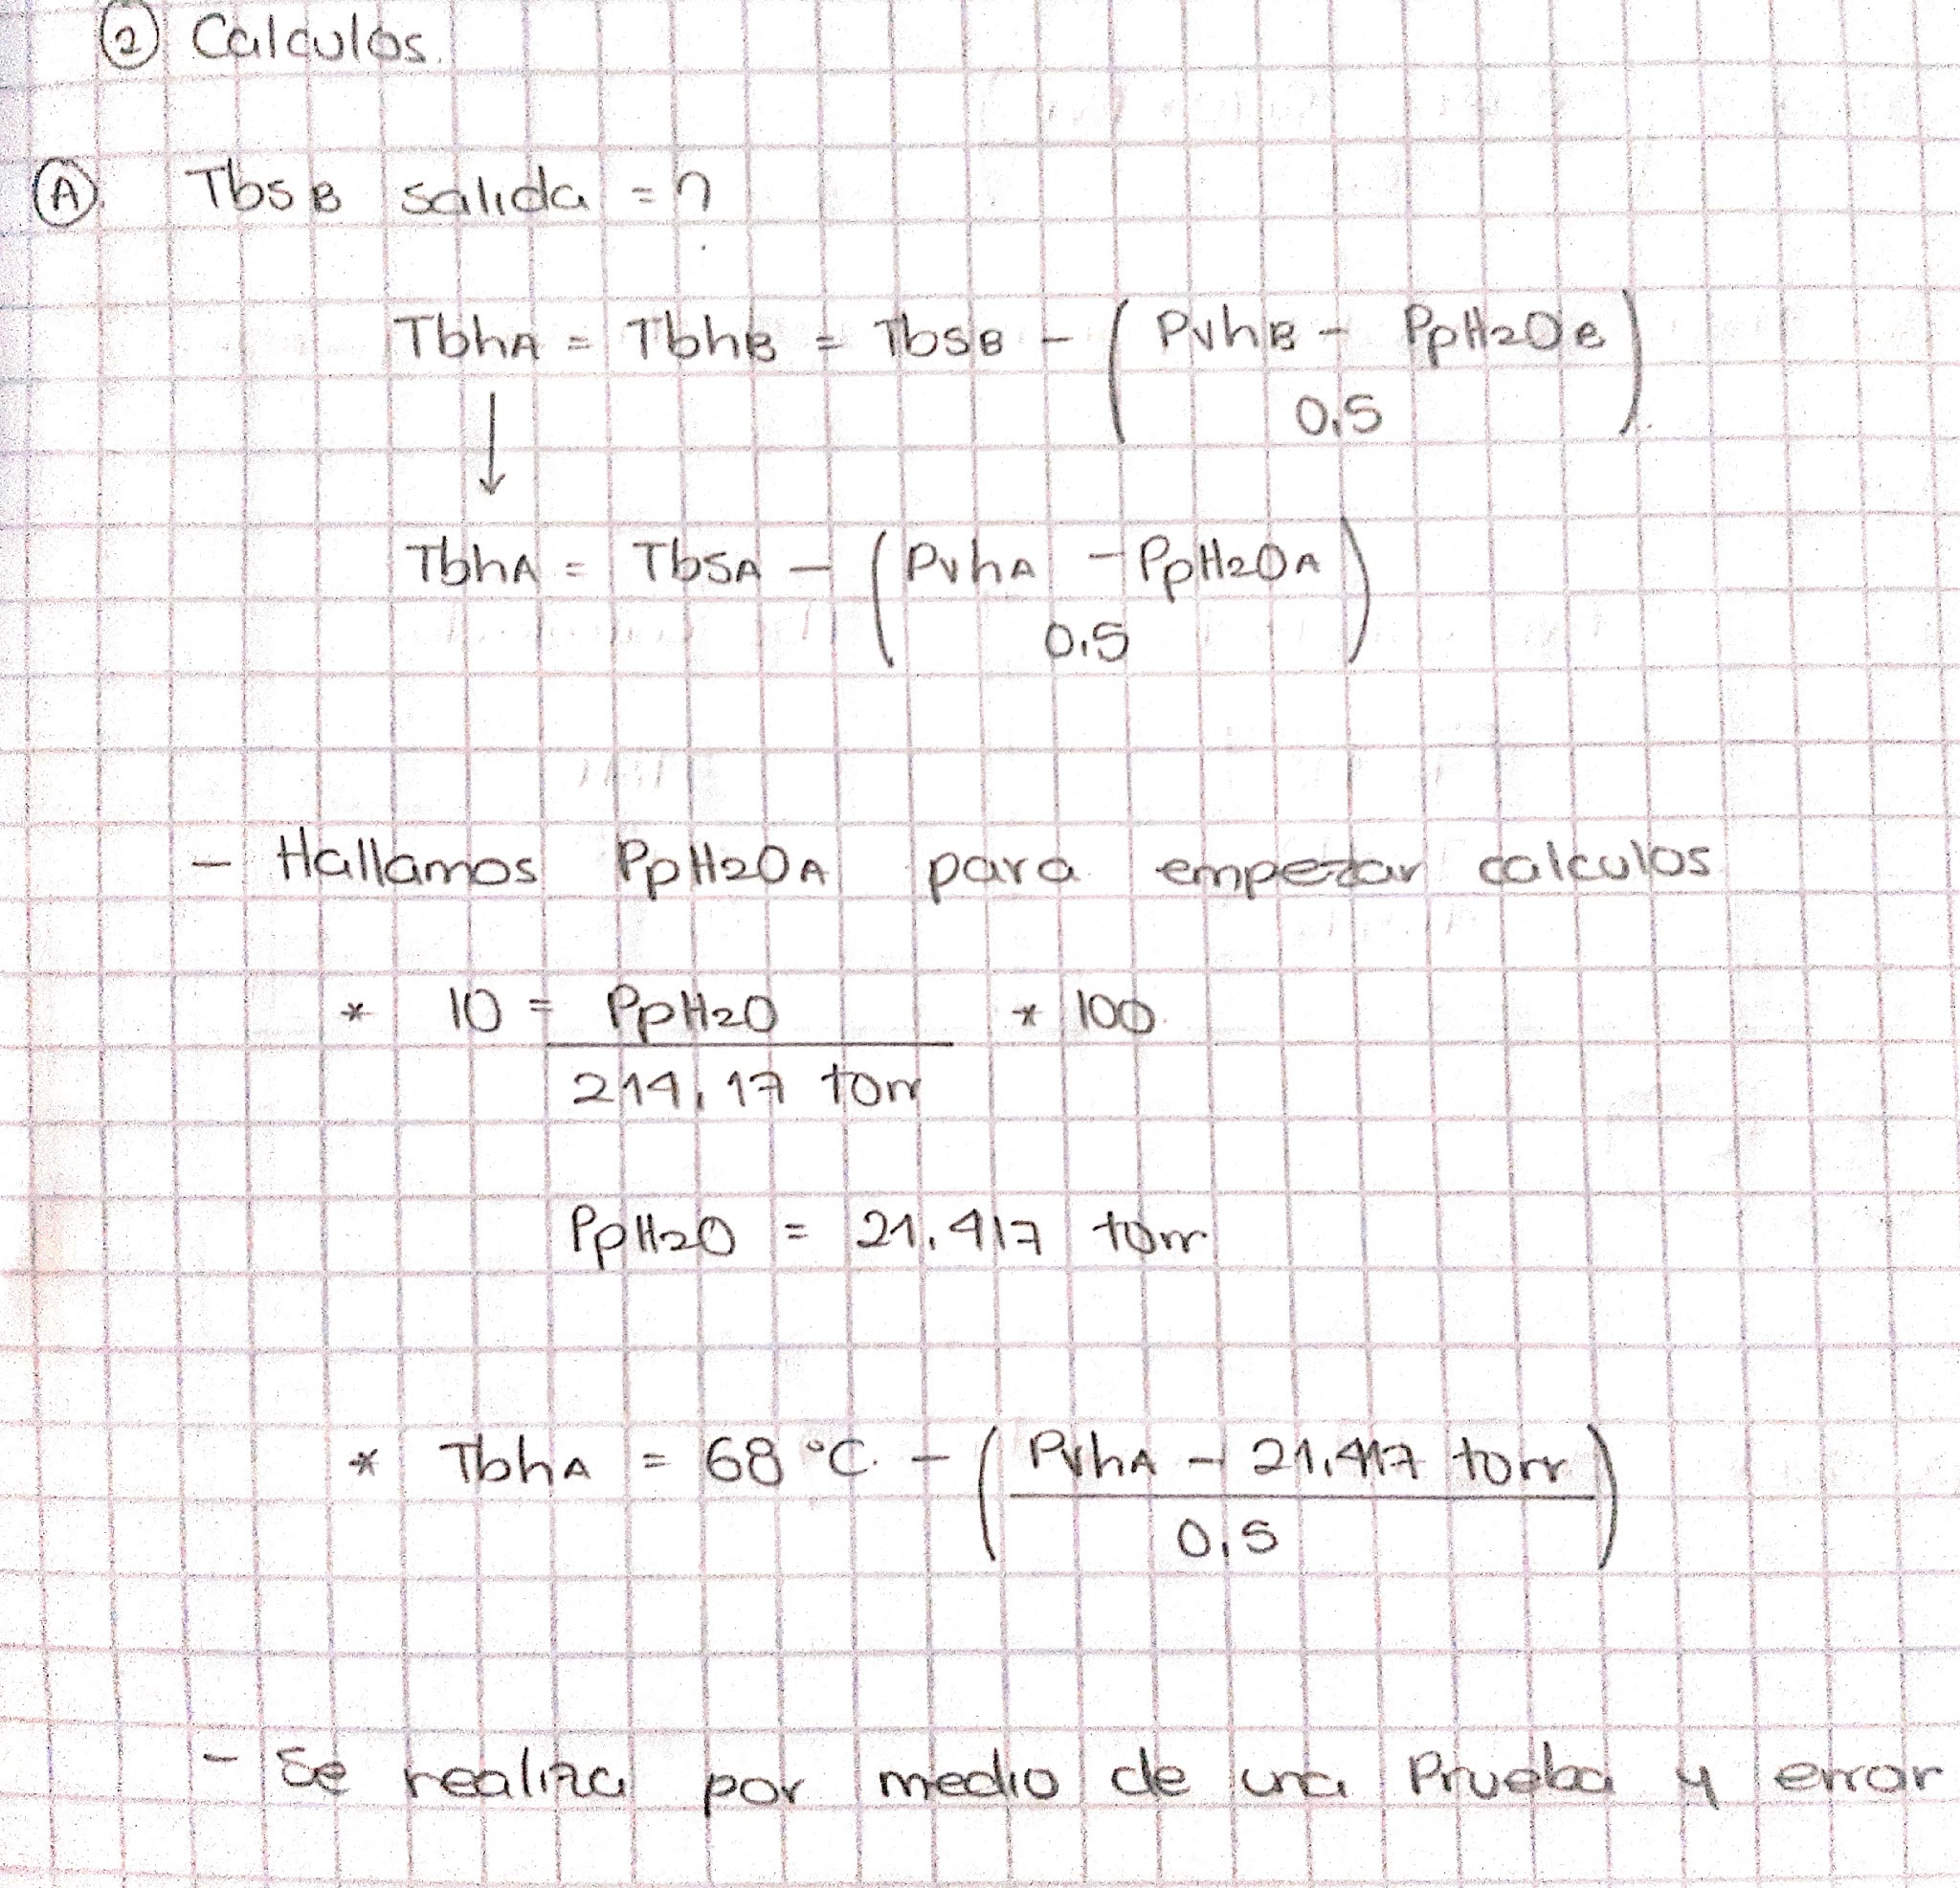 ② Calculos.
Ⓐ. TbsB salida = ?
TbhA = TbhB = TbsB - ( PvhB - PpH2OB )
0,5
↓
TbhA = TbsA - ( PvhA - PpH2OA )
0,5
- Hallamos PpH2OA para empezar calculos
* 10 = PpH2O * 100
214,17 torr
PpH2O = 21,417 torr
* TbhA = 68 °C. - ( PvhA - 21,417 torr )
0,5
- Se realiza por medio de una Prueba y error